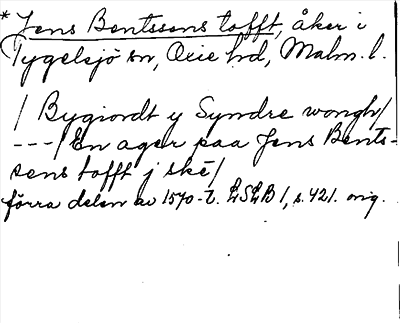 * Jens Bentssens tofft, åker i
Tygelsjö sn, Oxie hd, Malm. l.
/ Bygiordt y Syndre wongh/
---/ En ager paa Jens Bents-
sens tofft j ské/
förra delen av 1570-t. LSLB 1, s. 421. orig.